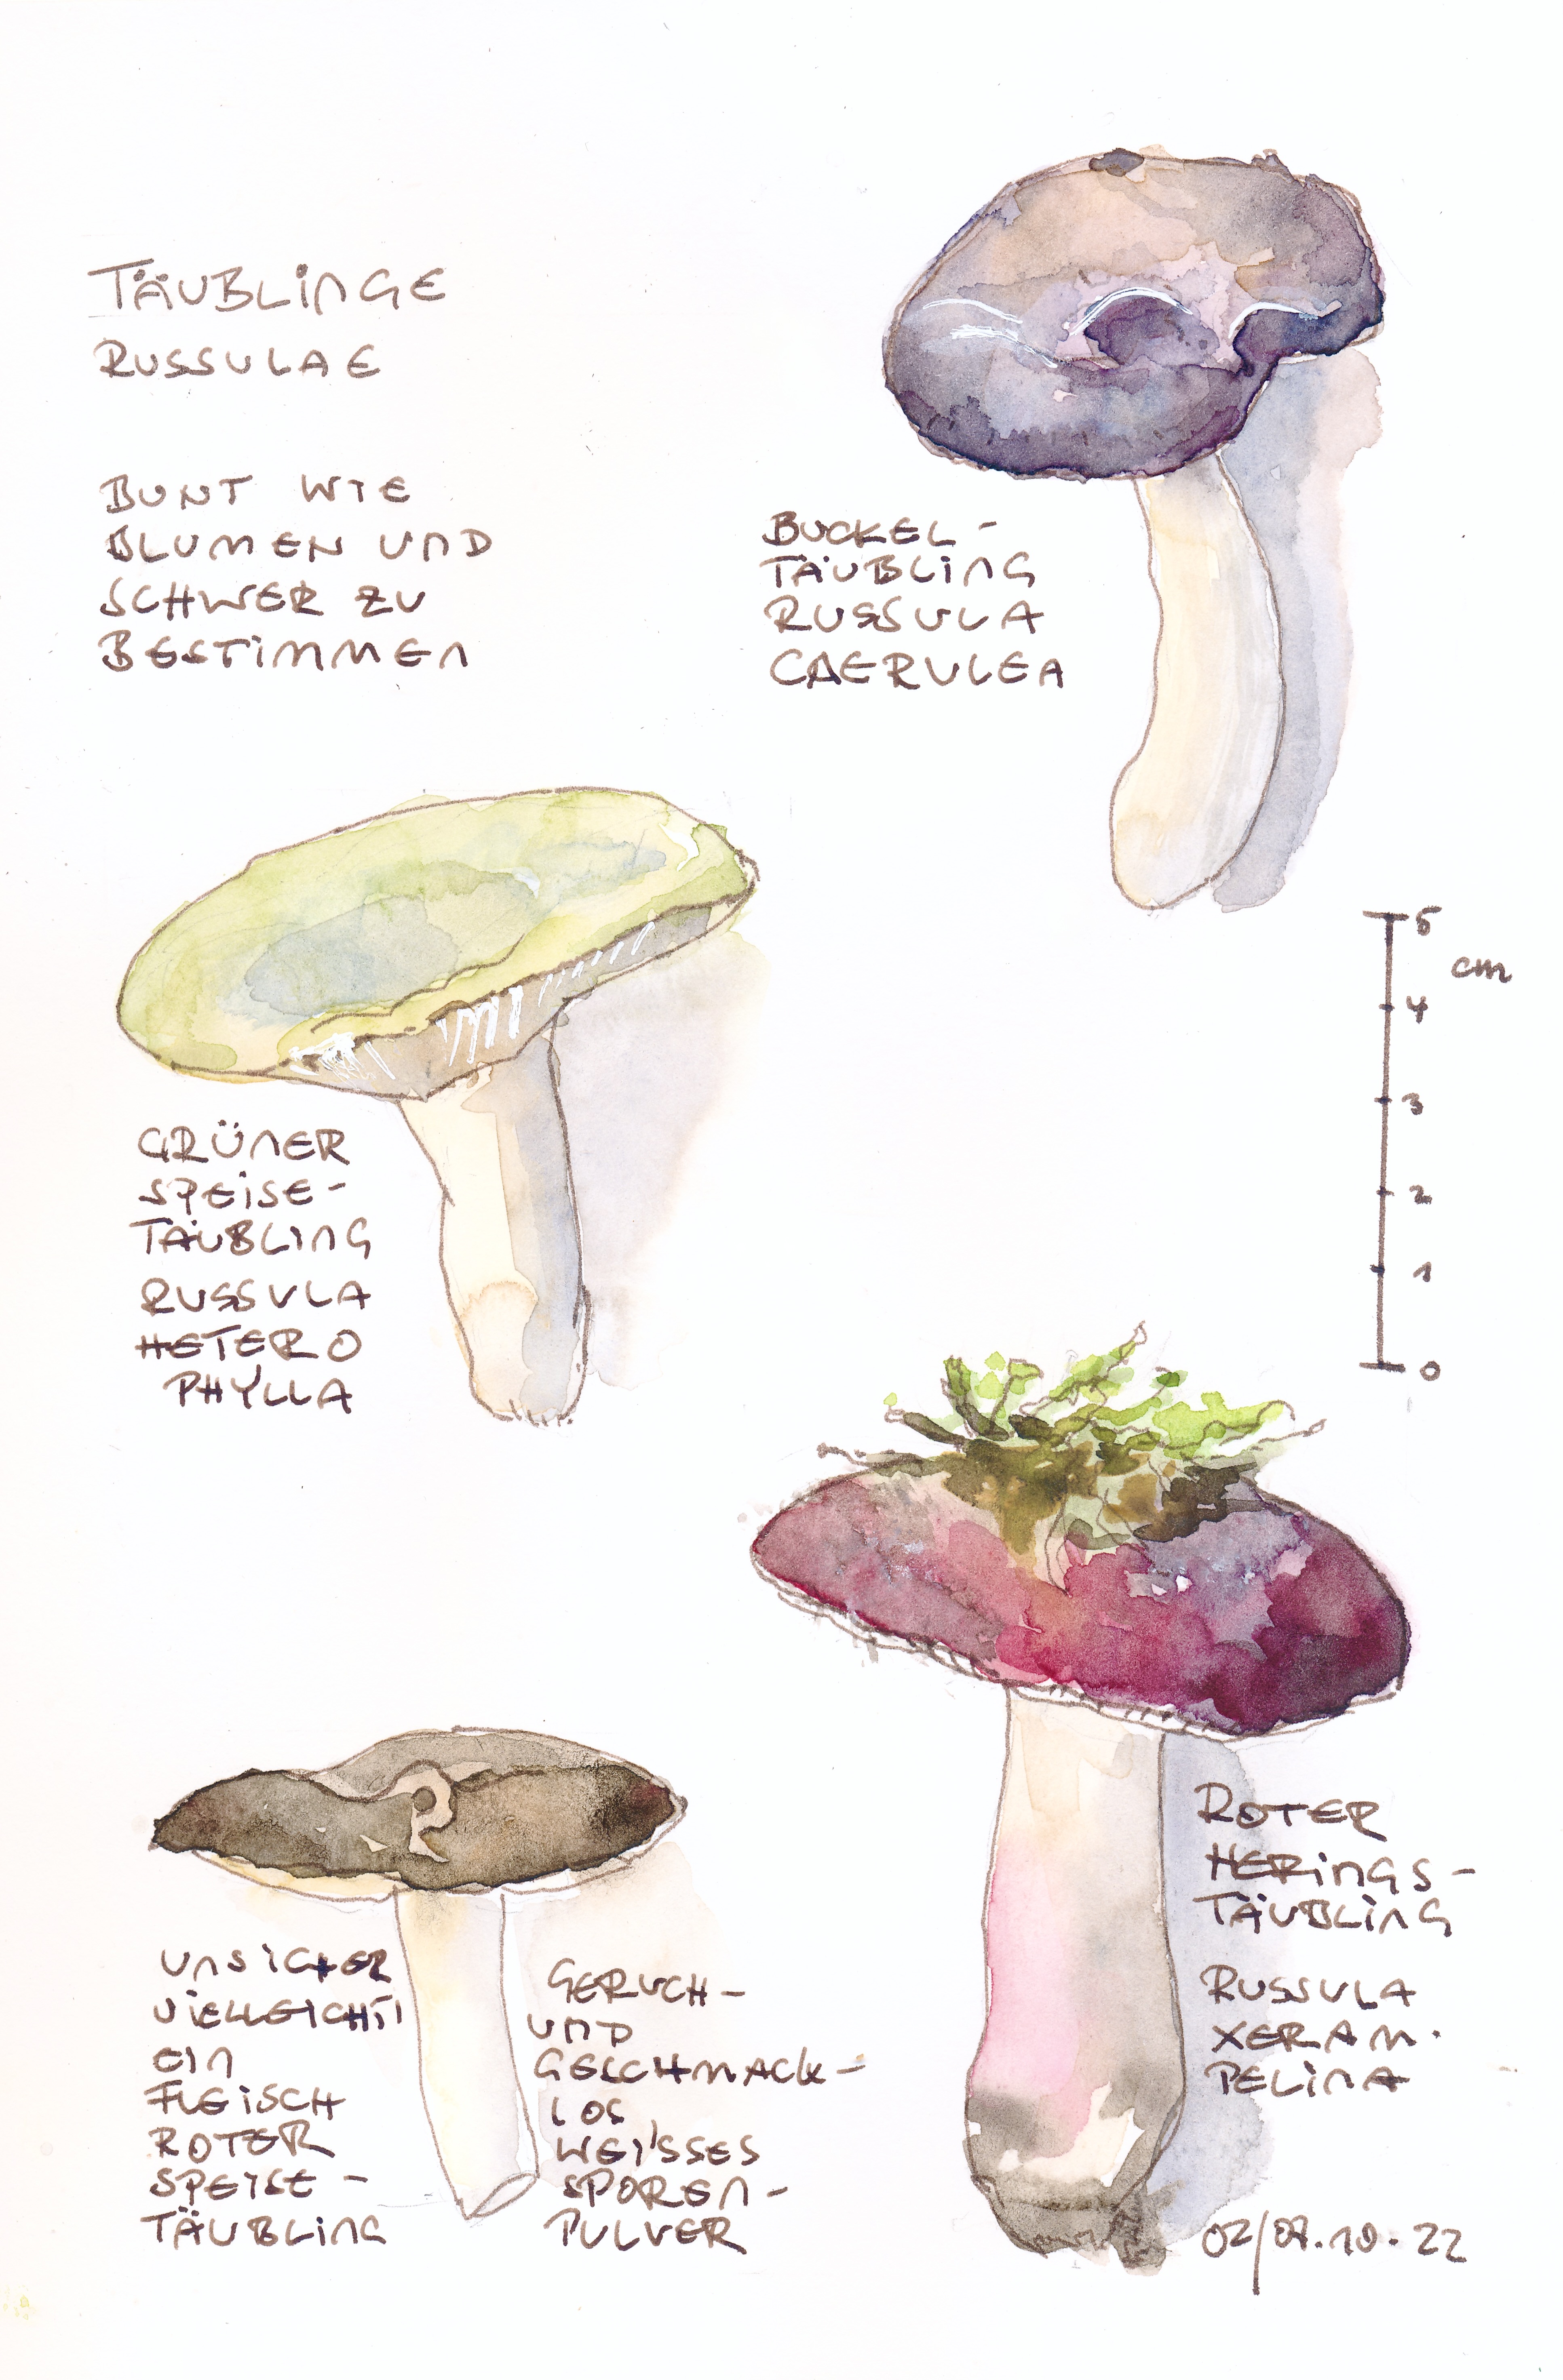 TÄUBLINGE
RUSSULAE
BUNT WIE
BLUMEN UND
SCHWER ZU
BESTIMMEN
BUCKEL-
TÄUBLING
RUSSULA
CAERULEA
5
cm
4
3
2
1
0
GRÜNER
SPEISE-
TÄUBLING
RUSSULA
HETERO
PHYLLA
ROTER
HERINGS-
TÄUBLING
RUSSULA
XERAM-
PELINA
UNSICHER
VIELLEICHT
EIN
FLEISCH
ROTER
SPEISE-
TÄUBLING
GERUCH-
UND
GESCHMACK-
LOS
WEISSES
SPOREN-
PULVER
.10.22